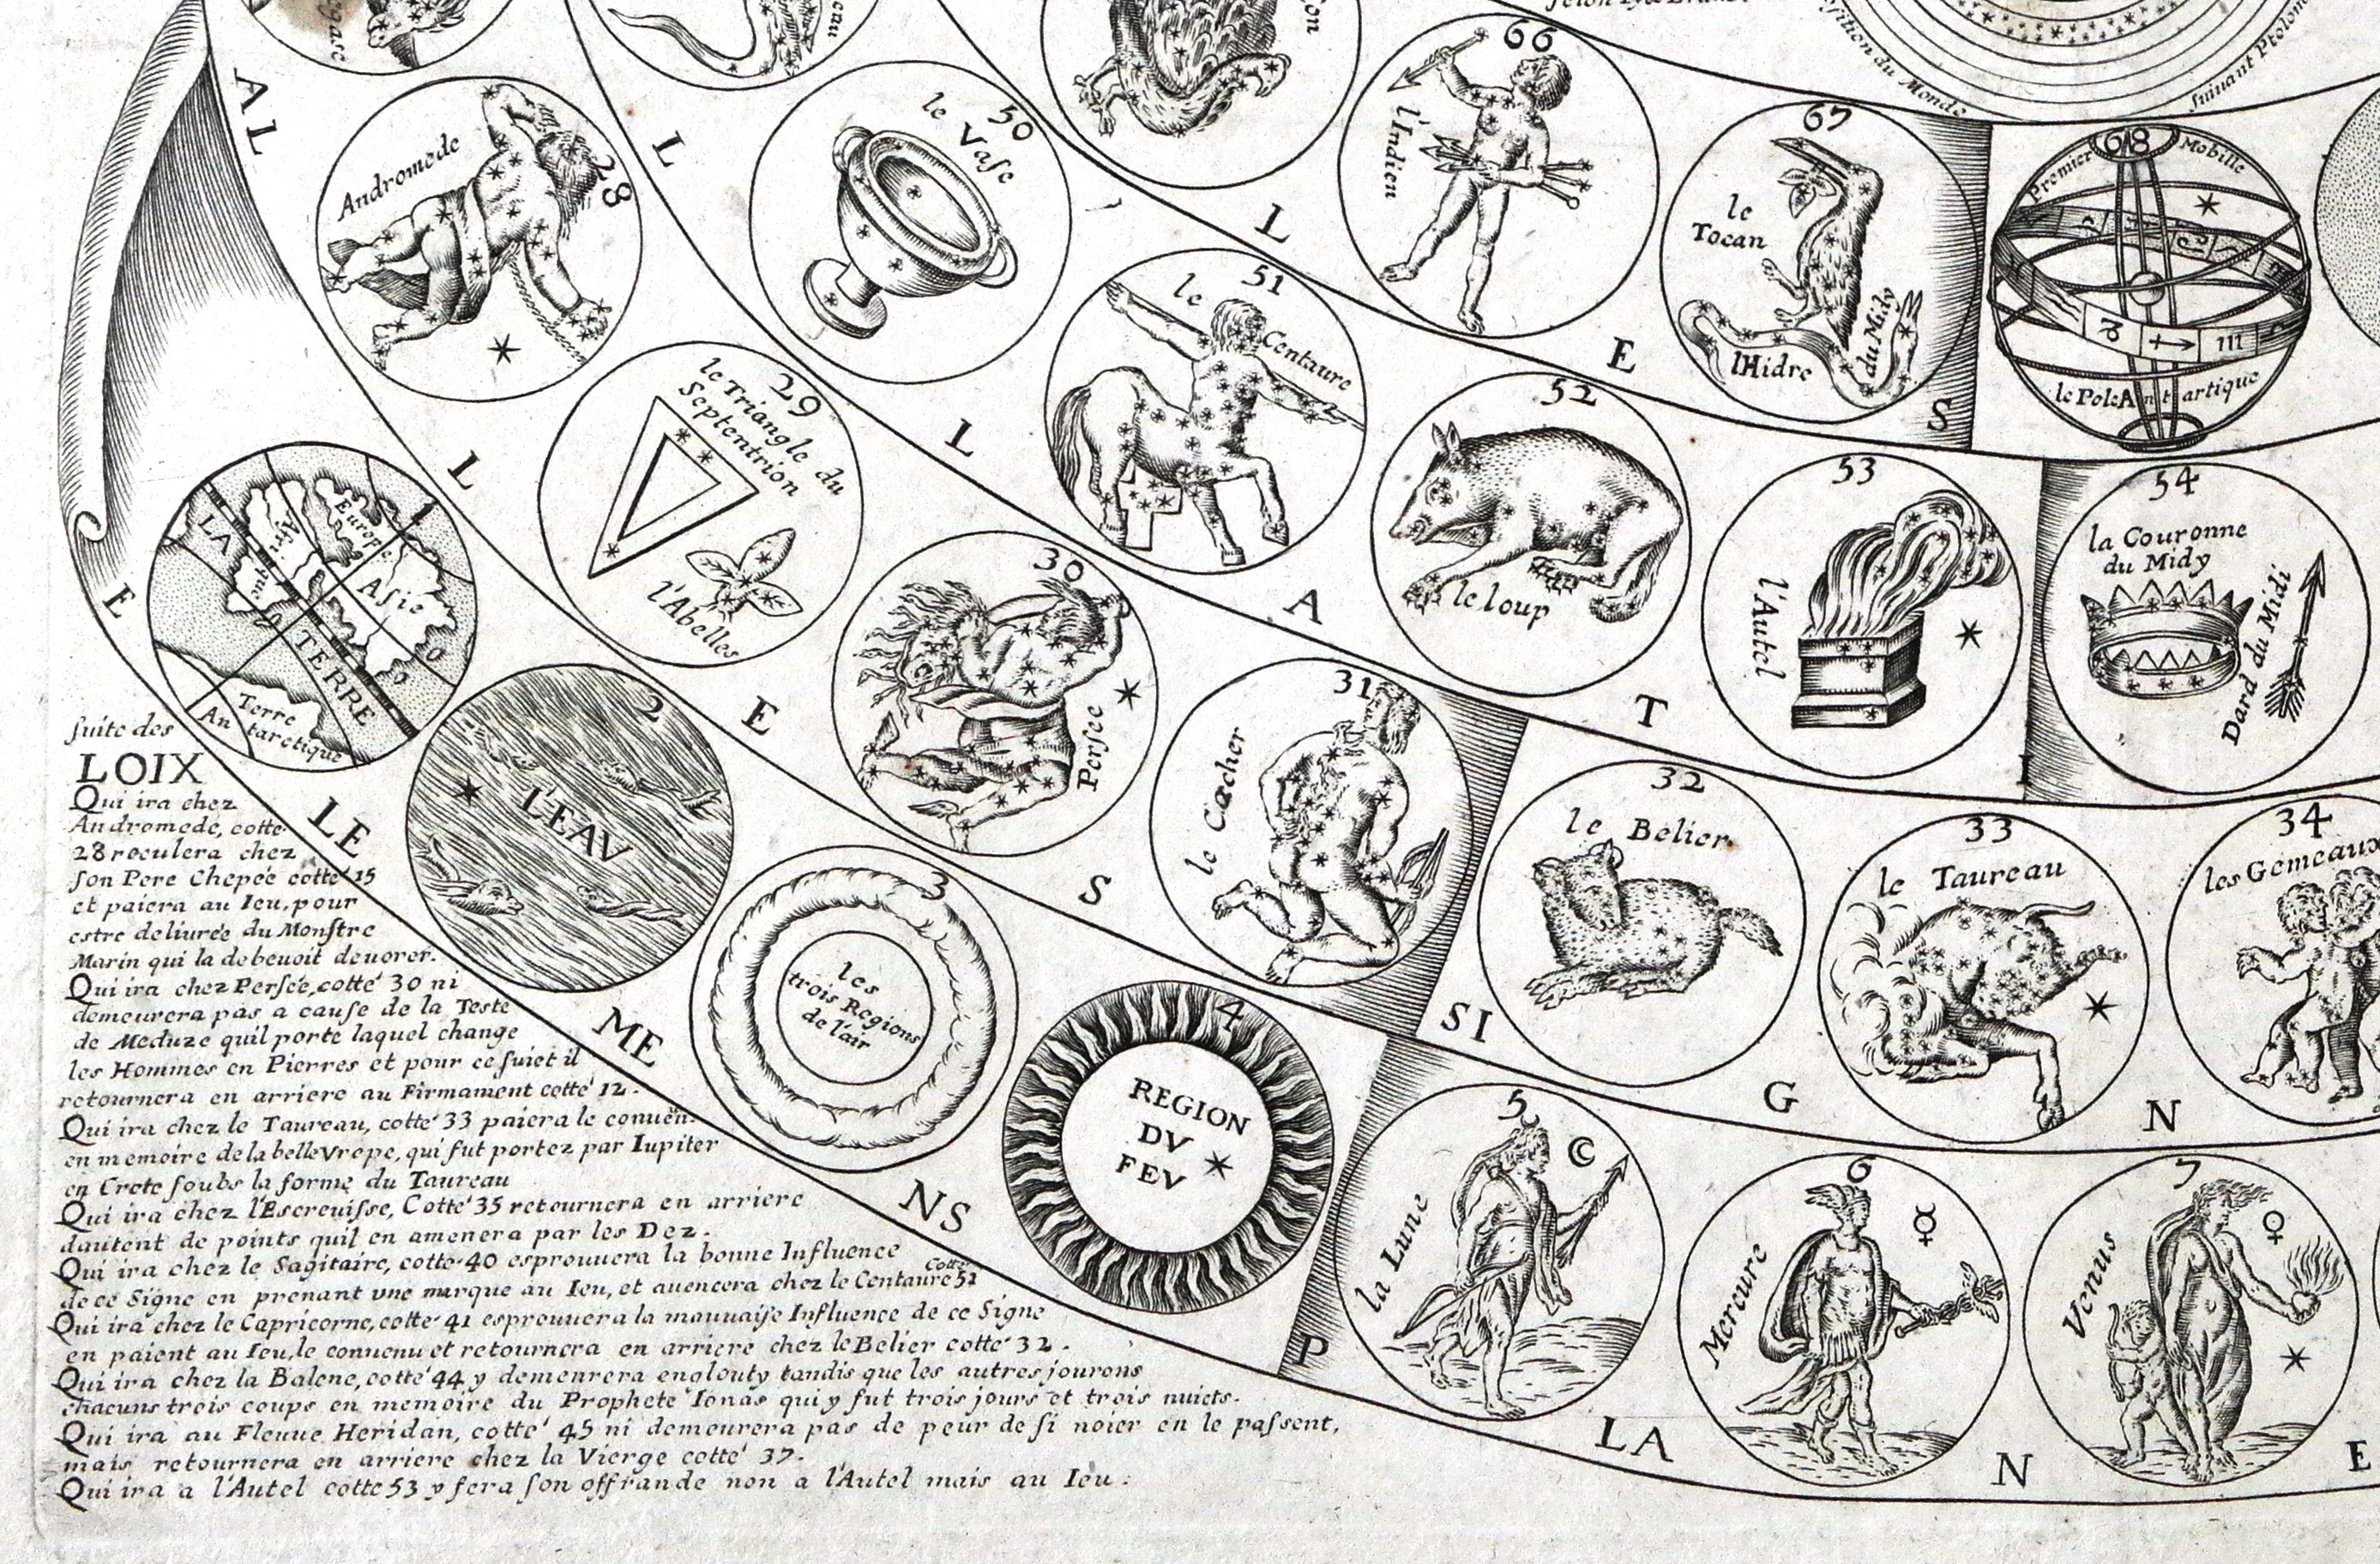 AL
L
E
L
E
S
LE
ME
NS
L
L
A
T
I
L
E
S
SI
G
N
P
LA
N
E
Position du Monde
suiuant Ptolom
28
Andromede
50
le Vase
66
l'Indien
67
le
Tocan
l'Hidre
du Midy
68
Premier Mobille
le Pole Antartique
29
le Triangle du
Septentrion
l'Abelles
51
le Centaure
52
le loup
53
l'Autel
54
la Couronne
du Midy
Dard du Midi
LA TERRE
Europe
Asie
Terre
Antarctique
2
L'EAV
30
Persée
31
le Cacher
32
le Belier
33
le Taureau
34
les Gemeaux
3
les
trois Regions
de l'air
4
REGION
DV
FEV
5
la Lune
☾
6
Mercure
☿
7
Venus
♀
suite des
LOIX
Qui ira chez
Andromede, cotte
28 reculera chez
son Pere Chepée cotté 15
et paiera au Ieu, pour
estre deliurée du Monstre
Marin qui la debeuoit deuorer.
Qui ira chez Persée, cotté 30 ni
demeurera pas a cause de la Teste
de Meduze quil porte laquel change
les Hommes en Pierres et pour ce suiet il
retournera en arriere au Firmament cotté 12.
Qui ira chez le Taureau, cotté 33 paiera le conuen.
en memoire de la belle Vrope, qui fut portez par Iupiter
en Crete soubs la forme du Taureau
Qui ira chez l'Escreuisse, Cotté 35 retournera en arriere
dautent de points quil en amenera par les Dez.
Qui ira chez le Sagitaire, cotté 40 esprouuera la bonne Influence
de ce Signe en prenant vne marque au Ieu, et auencera chez le Centaure Cotté 51
Qui ira chez le Capricorne, cotté 41 esprouuera la mauuaise Influence de ce Signe
en paient au Ieu, le conuenu et retournera en arriere chez le Belier cotté 32.
Qui ira chez la Balene, cotté 44 y demeurera englouty tandis que les autres jourons
chacuns trois coups en memoire du Prophete Ionas qui y fut trois jours et trois nuicts.
Qui ira au Fleuue Heridan, cotté 45 ni demeurera pas de peur de si noier en le passent,
mais retournera en arriere chez la Vierge cotté 37.
Qui ira a l'Autel cotté 53 y fera son offrande non a l'Autel mais au Ieu :